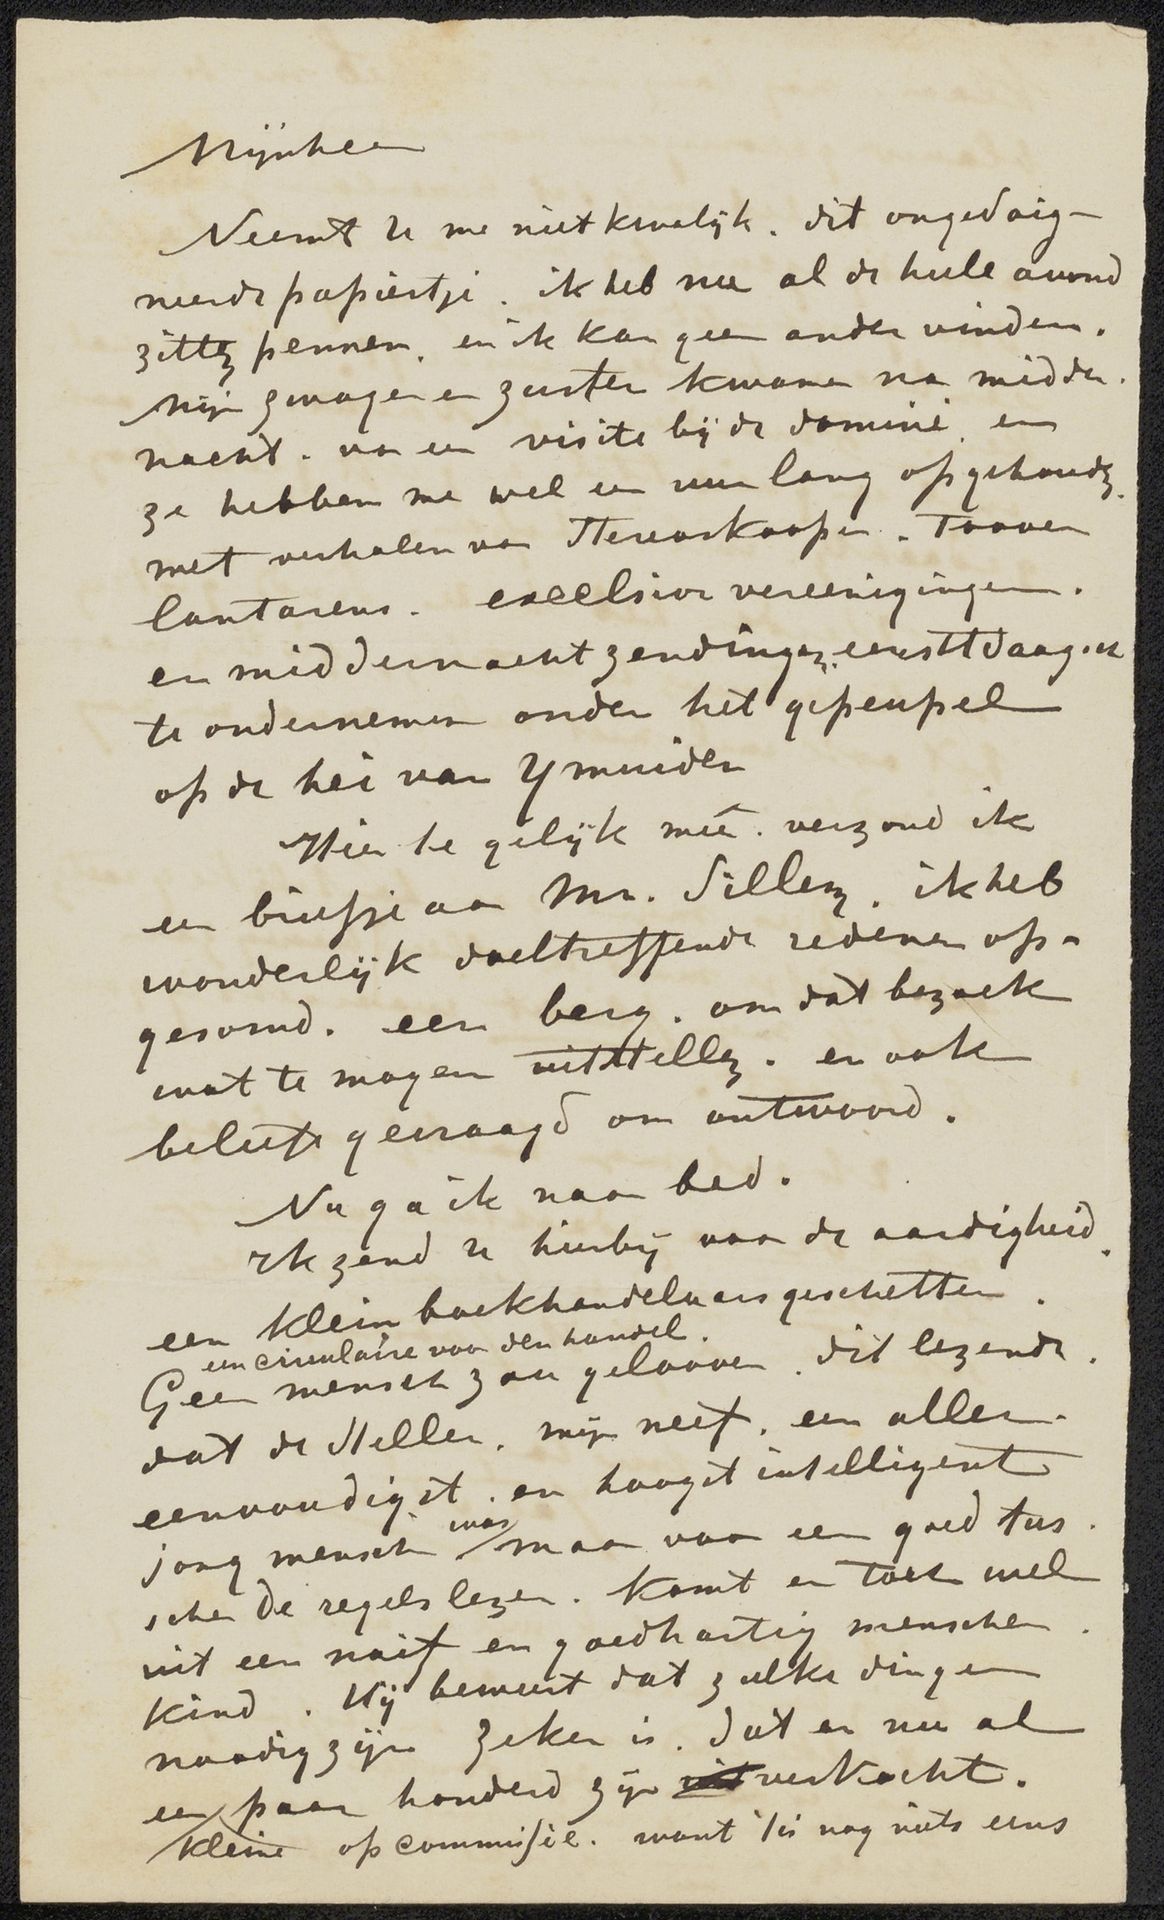 Mijnheer
Neemt U me niet kwalijk. dit ongedaig-
neerde papiertje. ik heb nu al de heele avond
zitten pennen. en ik kan geen ander vinden.
Mijn zwager en zuster kwamen na midder-
nacht. van een visite bij de dominé. en
ze hebben me wel een uur lang opgehouden.
met verhalen van Stereoskoopen. Toover
lantarens. excelsior vereenigingen.
en middernacht zendingen. eerstdaags
te ondernemen onder het gepeupel
op de hei van Ymuiden
Hier te gelijk meê. verzond ik
een briefje aan Mr. Sillem. ik heb
wonderlijk doeltreffende redenen op-
gesomd. een berg. om dat bezoek
wat te mogen uitstellen. en ook
beleefd gevraagd om antwoord.
Nu ga ik naar bed.
Ik zend U hierbij voor de aardigheid.
een klein boekhandelaars geschetter.
een circulaire voor den handel.
Geen mensch zou gelooven. dit lezende.
dat de steller. mijn neef. een aller-
eenvoudigst. en hoogst intelligent
jong mensch was maar voor een goed tus-
schen de regels lezer. komt er toch wel
uit een naïf en goedhartig menschen
kind. Hij beweert dat zulke dingen
noodig zijn zeker is. dat er nu al
een paar honderd zijn verkocht.
kleine op commissie. want 't is nog niets eens